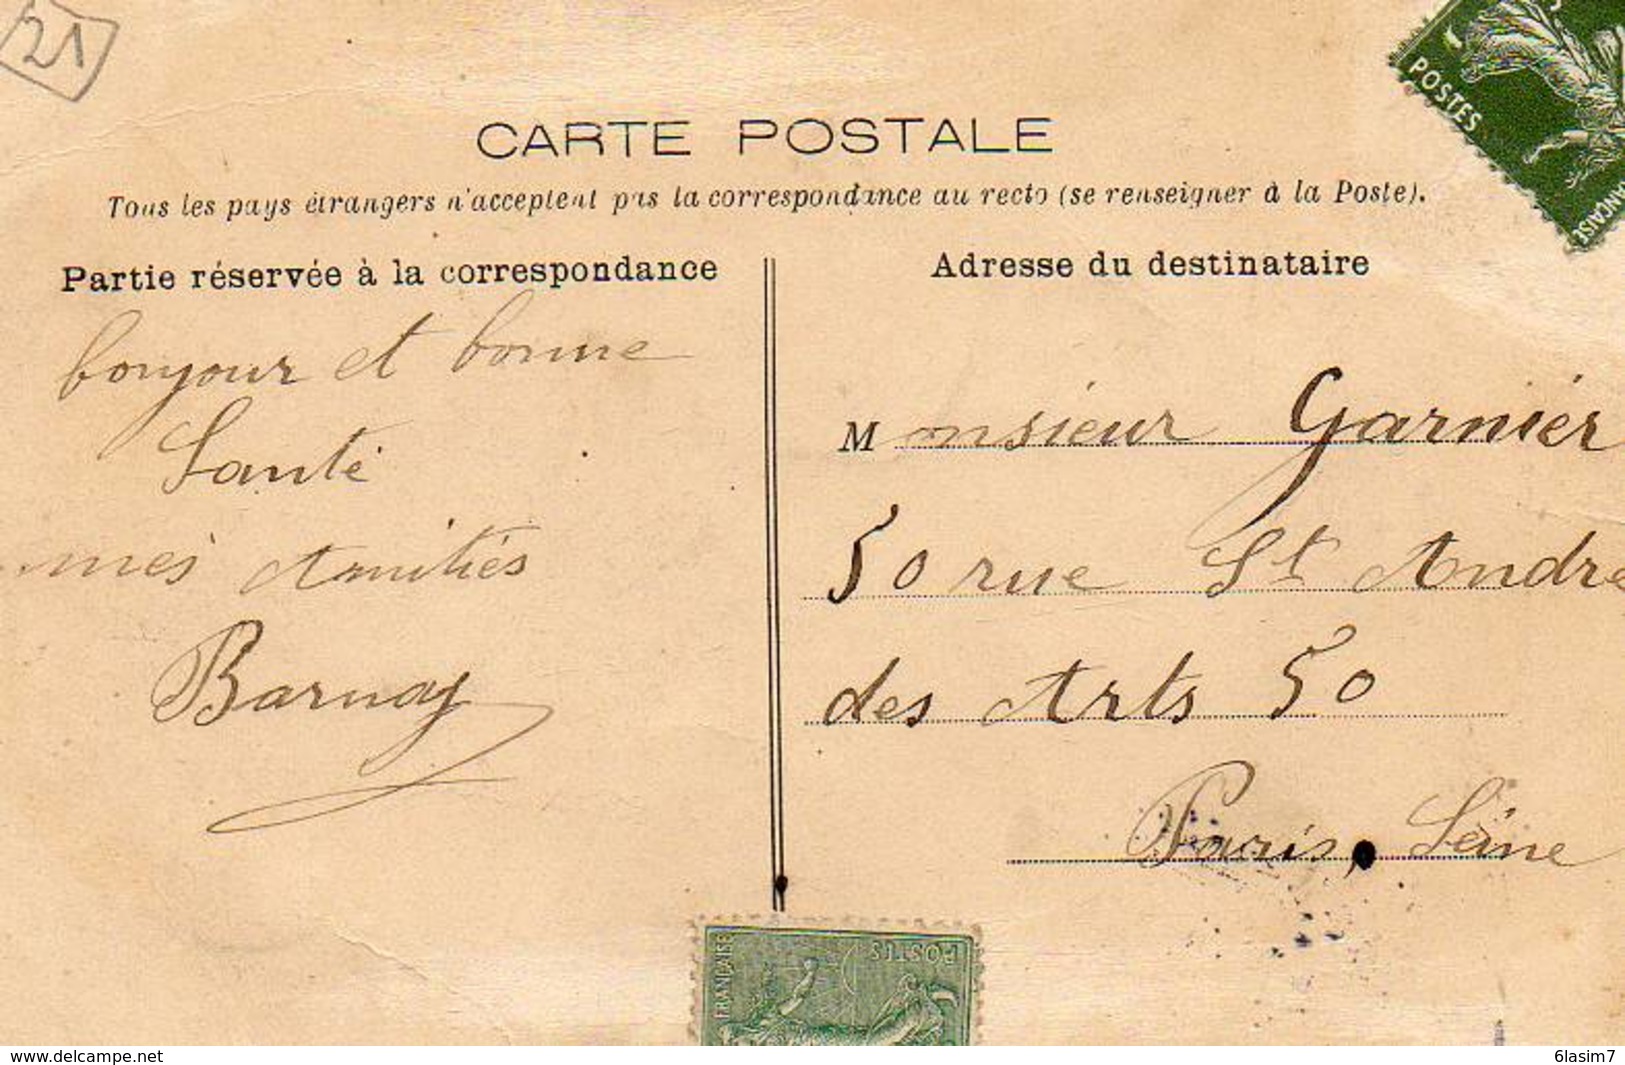 21
CARTE POSTALE
Tous les pays étrangers n'acceptent pas la correspondance au recto (se renseigner à la Poste).
Partie réservée à la correspondance
bonjour et bonne
Santé
mes Amitiés
Barnay
Adresse du destinataire
Monsieur Garnier
50 rue St Andre
des Arts 50
Paris, Seine
POSTES
FRANÇAISE
FRANÇAISE
POSTES
www.delcampe.net
6lasim7